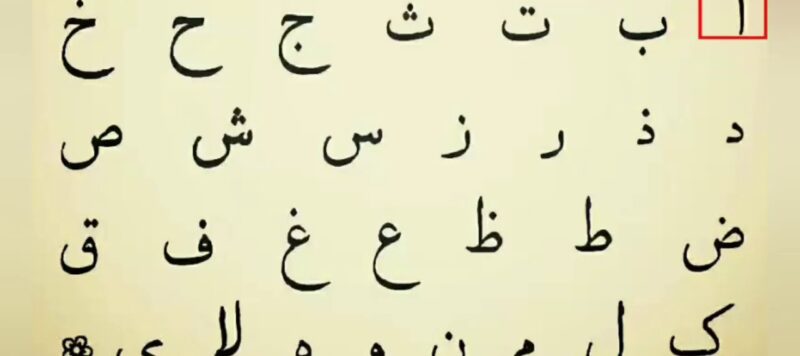 ا ب ت ث ج ح خ
د ذ ر ز س ش ص
ض ط ظ ع غ ف ق
ک ل م ن و ه لا ی